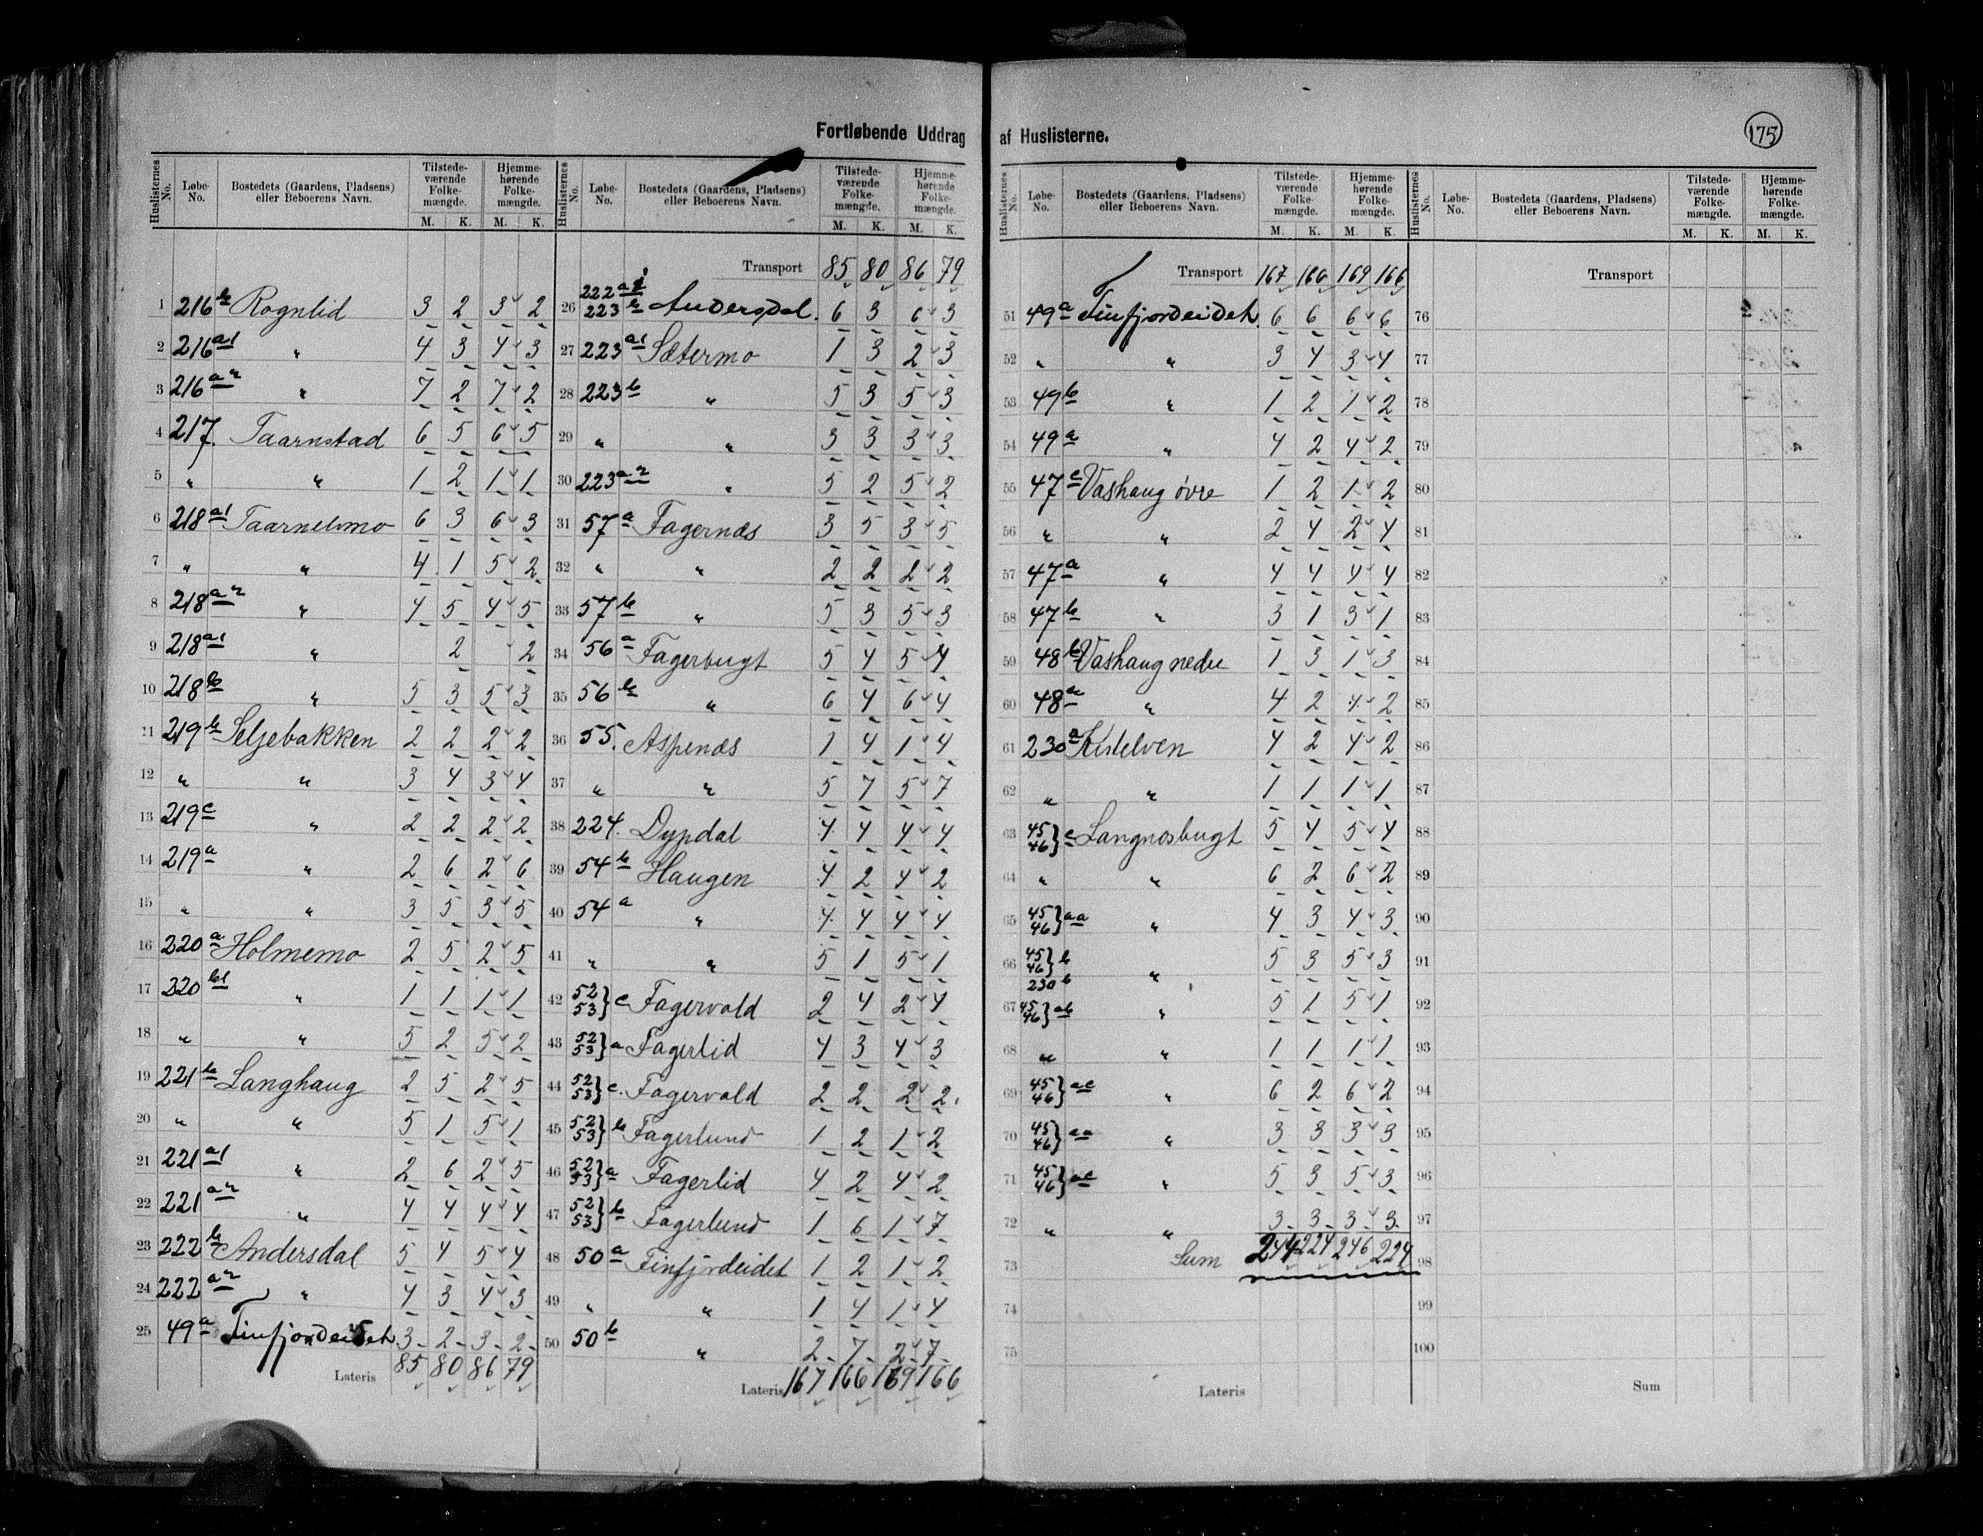 Fortløbende Uddrag af Huslisterne.
175
Huslisternes No. Løbe-No. Bostedets (Gaardens, Pladsens) eller Beboerens Navn. Tilstedeværende Folkemængde. M. K. Hjemmehørende Folkemængde. M. K.
1 216 b Rognlid 3 2 3 2
2 216 a1 " 4 3 4 3
3 216 a2 " 7 2 7 2
4 217. Taarnstad 6 5 6 5
5 " " 1 2 1 1
6 218 a1 Taarnelvmo 6 3 6 3
7 " " 4 1 5 2
8 218 a2 " 4 5 4 5
9 218 a1 " 2 2
10 218 b " 5 3 5 3
11 219 b Seljebakken 2 2 2 2
12 " " 3 4 3 4
13 219 c " 2 2 2 2
14 219 a " 2 6 2 6
15 " " 3 5 3 5
16 220 a Holmemo 2 5 2 5
17 220 b1 " 1 1 1 1
18 " " 5 2 5 2
19 221 b Langhaug 2 5 2 5
20 " " 5 1 5 1
21 221 a1 " 2 6 2 5
22 221 a2 " 4 4 4 4
23 222 b Andersdal 5 4 5 4
24 222 a2 " 4 3 4 3
25 49 a Finfjordeidet 3 2 3 2
Lateris 85 80 86 79
Huslisternes No. Løbe-No. Bostedets (Gaardens, Pladsens) eller Beboerens Navn. Tilstedeværende Folkemængde. M. K. Hjemmehørende Folkemængde. M. K.
Transport 85 80 86 79
26 222 a1 223 b Andersdal. 6 3 6 3
27 223 a1 Sætermo 1 3 2 3
28 223 b " 5 3 5 3
29 " " 3 3 3 3
30 223 a2 " 5 2 5 2
31 57 a Fagernæs 3 5 3 5
32 " " 2 2 2 2
33 57 b " 5 3 5 3
34 56 a Fagerbugt 5 4 5 4
35 56 b " 6 4 6 4
36 55. Aspenæs 1 4 1 4
37 " " 5 7 5 7
38 224. Dypdal 4 4 4 4
39 54 b Haugen 4 2 4 2
40 54 a " 4 4 4 4
41 " " 5 1 5 1
42 52 53 } c Fagervold 2 4 2 4
43 52 53 } a Fagerlid 4 3 4 3
44 52 53 } c. Fagervold 2 2 2 2
45 52 53 } b Fagerlund 1 2 1 2
46 52 53 } a Fagerlid 4 2 4 2
47 52 53 } b Fagerlund 1 6 1 7
48 50 a Finfjordeidet 1 2 1 2
49 " " 1 4 1 4
50 50 b " 2 7 2 7
Lateris 167 166 169 166
Huslisternes No. Løbe-No. Bostedets (Gaardens, Pladsens) eller Beboerens Navn. Tilstedeværende Folkemængde. M. K. Hjemmehørende Folkemængde. M. K.
Transport 167 166 169 166
51 49 a Finfjordeidet. 6 6 6 6
52 " " 3 4 3 4
53 49 b " 1 2 1 2
54 49 a " 4 2 4 2
55 47 c Vashaug øvre 1 2 1 2
56 " " 2 4 2 4
57 47 a " 4 4 4 4
58 47 b " 3 1 3 1
59 48 b Vashaug nedre 1 3 1 3
60 48 a " 4 2 4 2
61 230 a Kistelven 4 2 4 2
62 " " 1 1 1 1
63 45 46 } c Langnesbugt 5 4 5 4
64 " " 6 2 6 2
65 45 46 } aa " 4 3 4 3
66 45 46 } b 230 b " 5 3 5 3
67 45 46 } ab " 5 1 5 1
68 " " 1 1 1 1
69 45 46 } ac " 6 2 6 2
70 45 46 } aa " 3 3 3 3
71 45 46 } ac " 5 3 5 3
72 " " 3 3 3 3
73 Sum 244 224 246 224
74
75
Lateris
Huslisternes No. Løbe-No. Bostedets (Gaardens, Pladsens) eller Beboerens Navn. Tilstedeværende Folkemængde. M. K. Hjemmehørende Folkemængde. M. K.
Transport
76
77
78
79
80
81
82
83
84
85
86
87
88
89
90
91
92
93
94
95
96
97
98
99
100
Sum